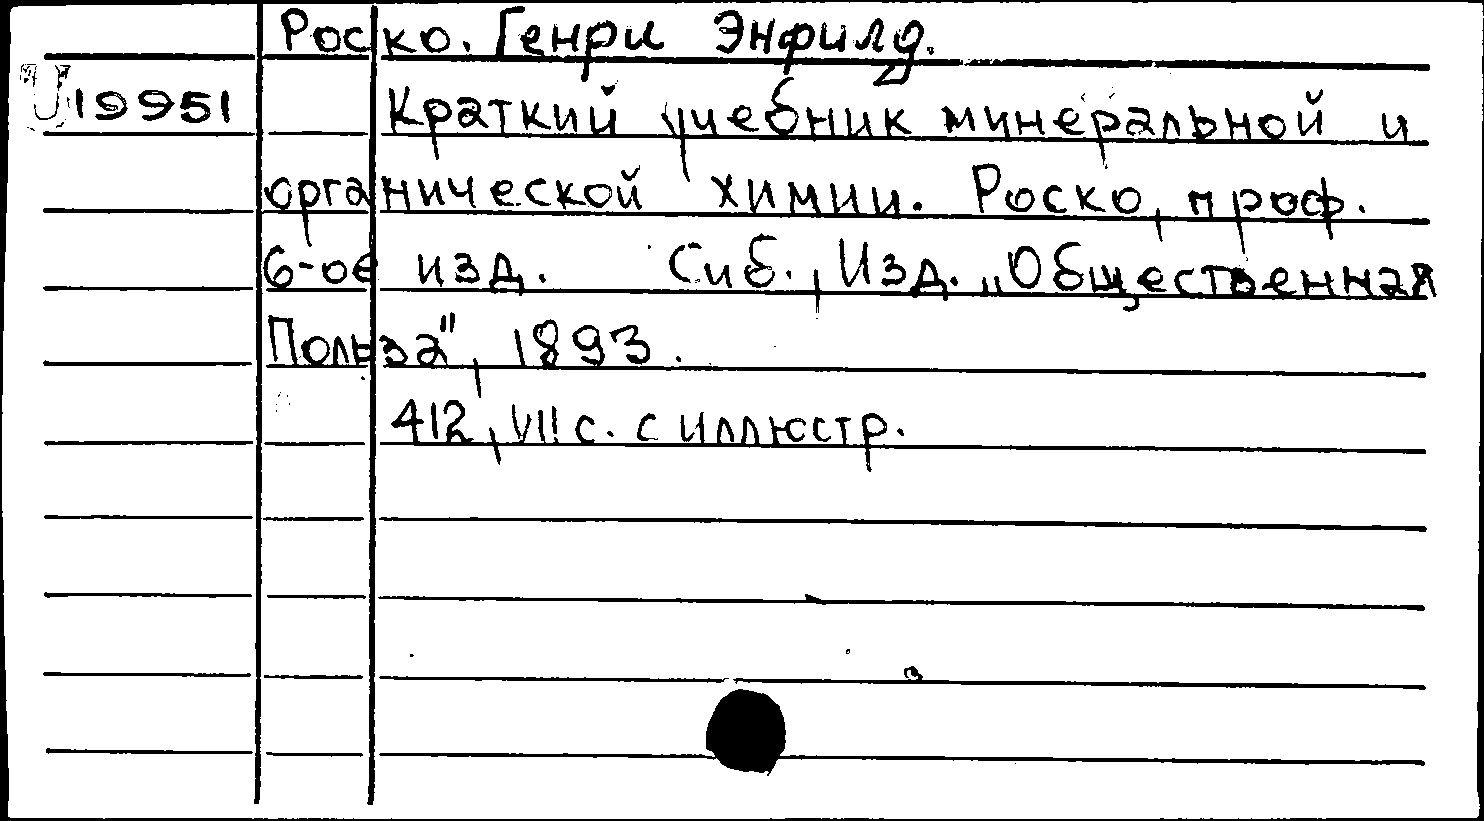 Роско. Генри Энфилд.
U19951 Краткий учебник минеральной и
органической химии. Роско, проф.
6-ое изд. Сиб., Изд. „Общественная
Польза", 1893.
412, VII с. с иллюстр.